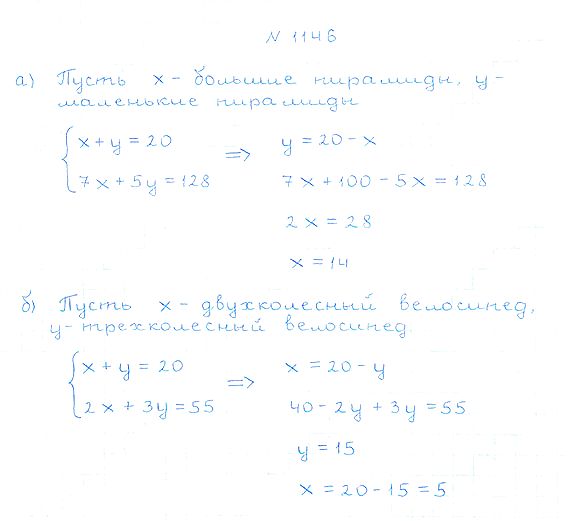 N 1146
а) Пусть x - большие пирамиды, y -
маленькие пирамиды
{ x + y = 20 => y = 20 - x
7x + 5y = 128 7x + 100 - 5x = 128
2x = 28
x = 14
б) Пусть x - двухколесный велосипед,
y - трехколесный велосипед
{ x + y = 20 => x = 20 - y
2x + 3y = 55 40 - 2y + 3y = 55
y = 15
x = 20 - 15 = 5